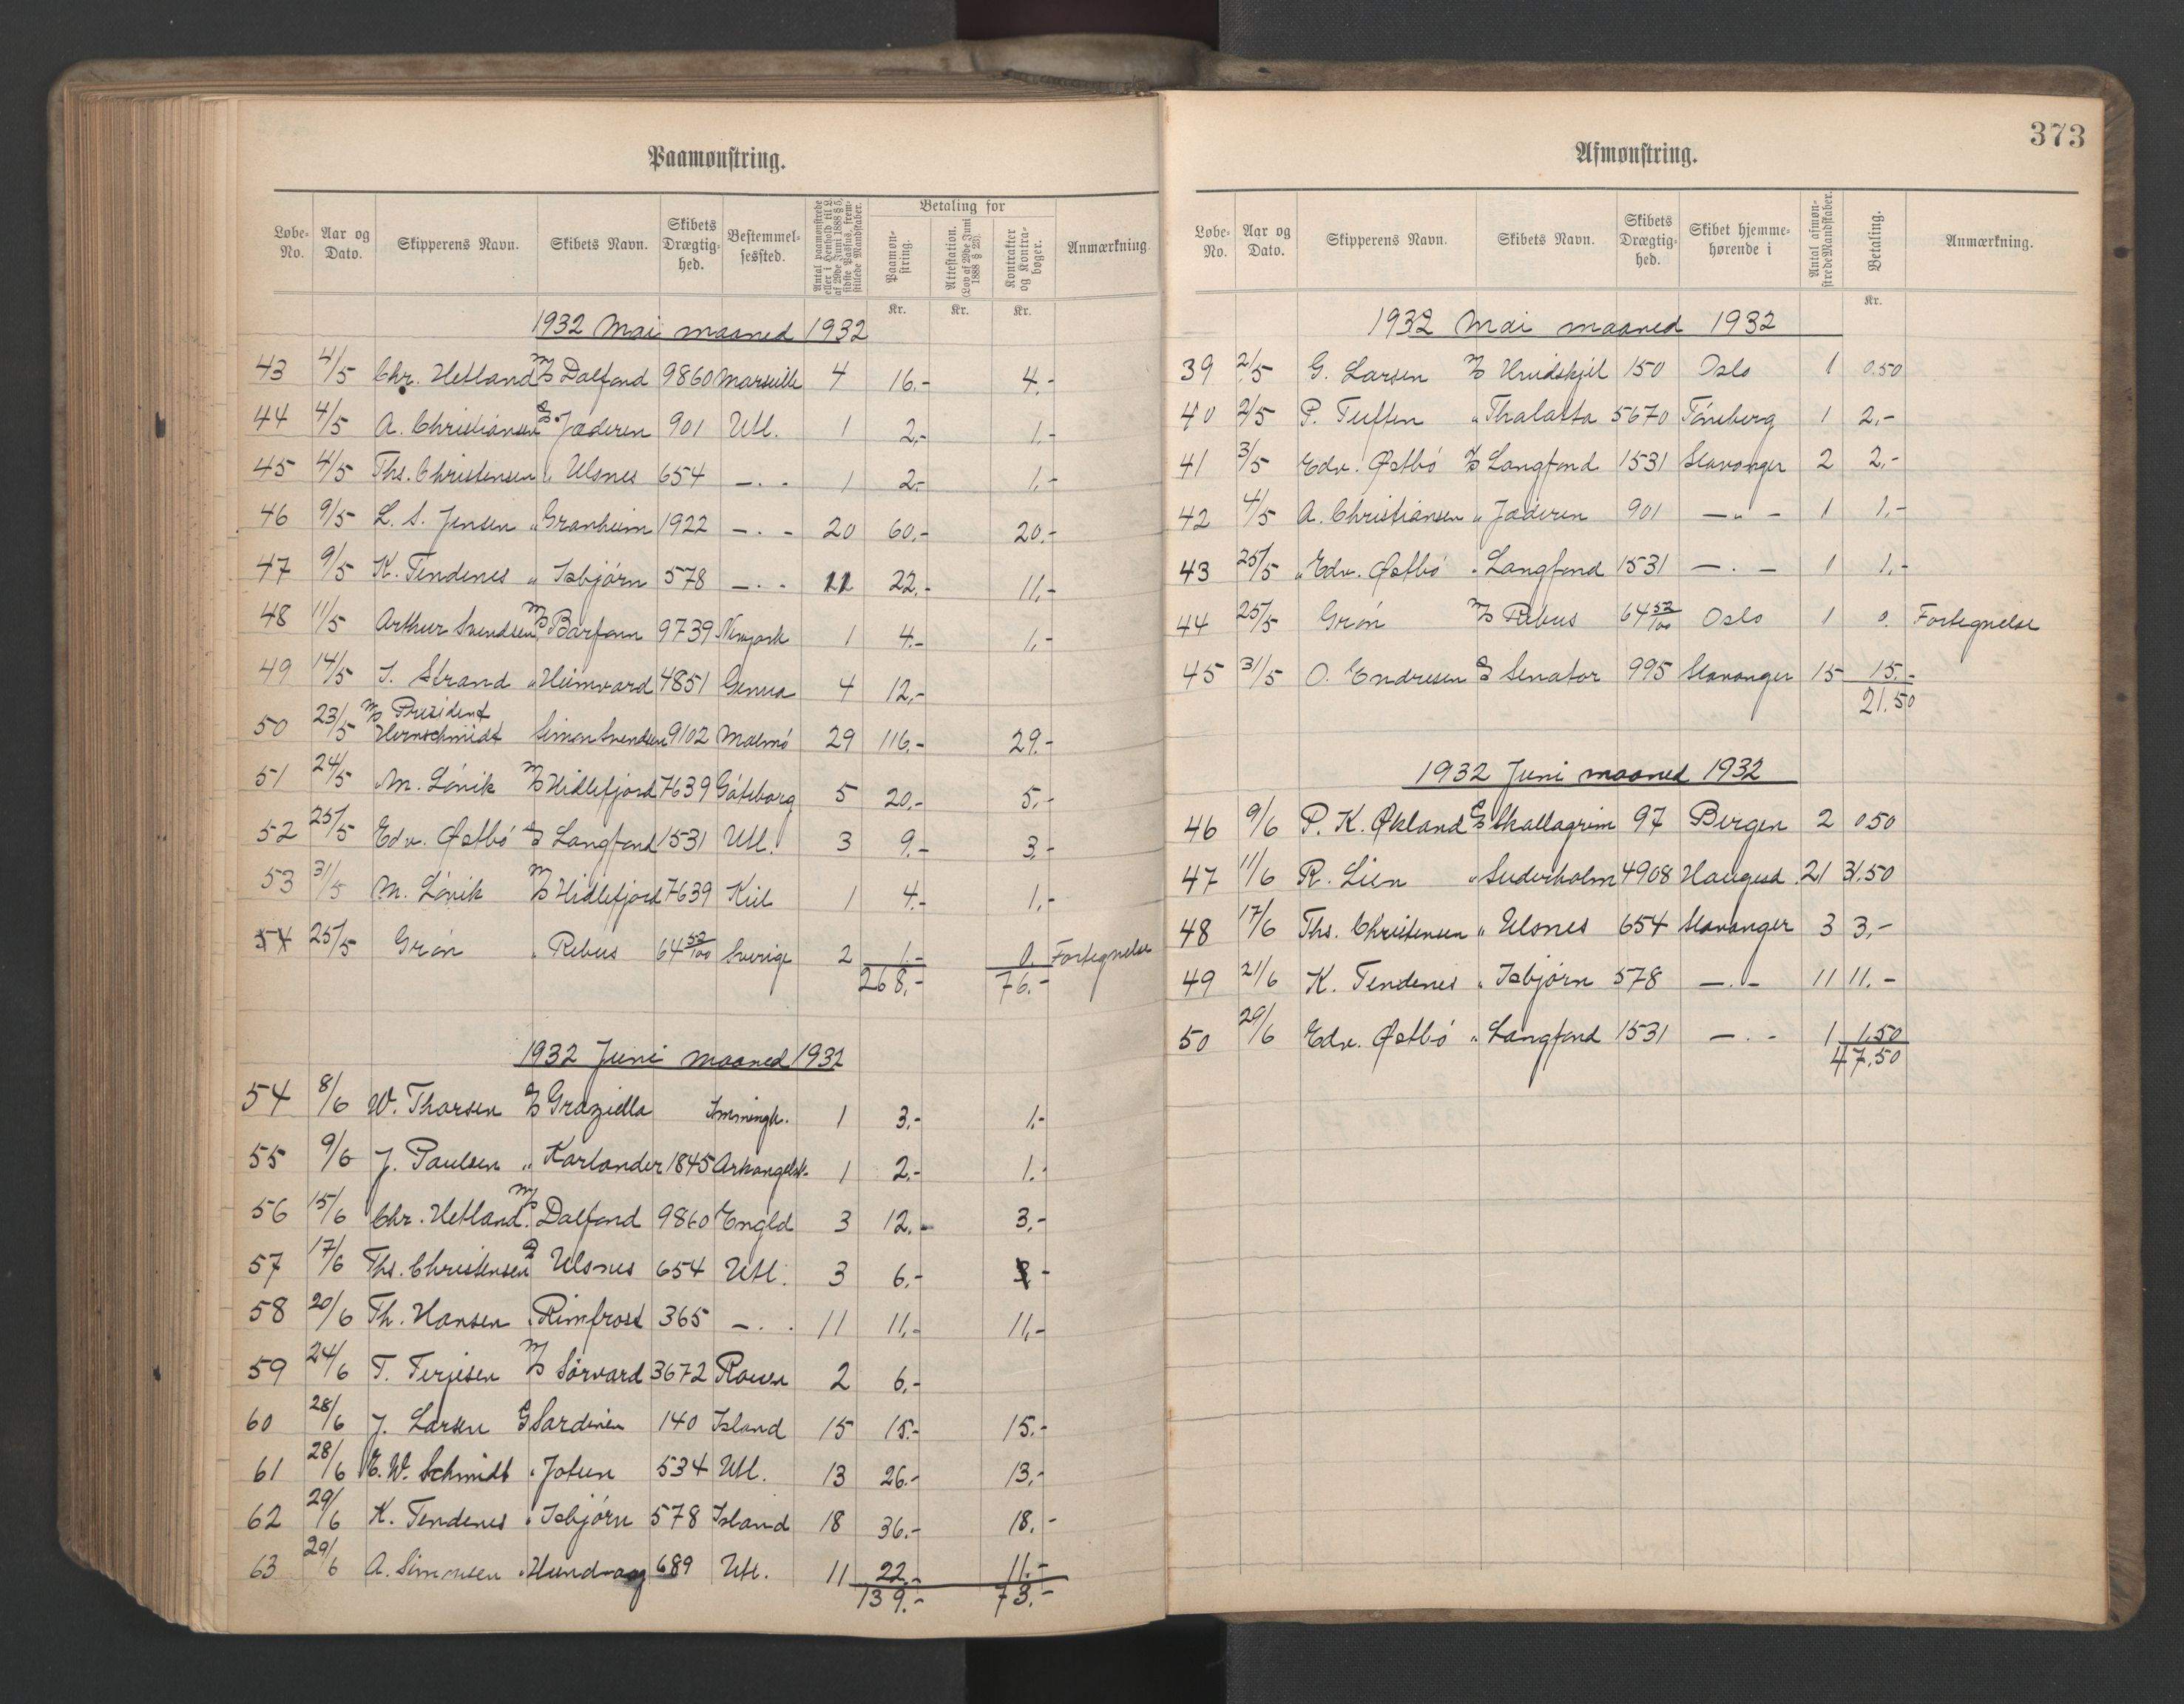 373
Paamønstring.
Løbe-No. Aar og Dato. Skipperens Navn. Skibets Navn. Skibets Drægtig-hed. Bestemmel-sessted. Antal paamønstrede eller i Henhold til L. af 29de Juni 1888 § 5, sidste Passus, frem-stillede Mandskaber. Betaling for Paamøn-string. Attestation. (Lov af 29de Juni 1888 § 23). Kontrakter og Kontra-bøger. Anmærkning
Kr. Kr. Kr.
1932 Mai maaned 1932
43 4/5 Chr. Hetland M/S Dalfond 9860 Marseille 4 16.- 4.-
44 4/5 A. Christiansen D/S Jæderen 901 Utl. 1 2,- 1.-
45 4/5 Ths. Christensen " Ulsnes 654 -.- 1 2.- 1,-
46 9/5 L. S. Jensen " Granheim 1922 -.- 20 60.- 20.-
47 9/5 K. Tendenes " Isbjørn 578 -.- 11 22.- 11,-
48 11/5 Arthur Svendsen M/S Barfonn 9739 Newyork 1 4.- 1,-
49 14/5 J. Strand " Heimvard 4851 Genua 4 12,-
50 23/5 M/S President Hernschmidt Simon Svendsen 9102 Malmö 29 116,- 29.-
51 24/5 M. Lönik M/S Hidlefjord 7639 Göteborg 5 20,- 5.-
52 25/5 Edv. Østbö D/S Langfond 1531 Utl. 3 9.- 3.-
53 31/5 M. Lönik M/S Hidlefjord 7639 Kiel 1 4.- 1,-
54 25/5 Grön " Rebus 64 52/100 Sverige 2 1.- 0. Fortegnelse
268,- 76.-
1932 Juni maaned 1932
54 8/6 W. Thorsen D/S Graziella Immingh. 1 3.- 1.-
55 9/6 J. Paulsen " Karlander 1845 Arkangelsk. 1 2.- 1.-
56 15/6 Chr. Hetland M/S Dalfond 9860 Engld 3 12.- 3.-
57 17/6 Ths. Christensen D/S Ulsnes 654 Utl. 3 6.- -
58 20/6 Th. Hansen " Rimfrost 365 -.- 11 11,- 11,-
59 24/6 T. Terjesen M/S Sörvard 3672 Rouen 2 6.-
60 28/6 J. Larsen D/S Sardinen 140 Island 15 15.- 15.-
61 28/6 E. W. Schmidt " Jotun 534 Utl. 13 26.- 13.-
62 29/6 K. Tendenes " Isbjørn 578 Island 18 36.- 18.-
63 29/6 A. Simonsen " Hundvaag 689 Utl. 11 22.- 11.-
139.- 73.-
Afmønstring.
Løbe-No. Aar og Dato. Skipperens Navn. Skibets Navn. Skibets Drægtig-hed. Skibet hjemme-hørende i Antal afmøn-strede Mandskaber. Betaling. Anmærkning.
Kr.
1932 Mai maaned 1932
39 2/5 G. Larsen M/S Hvidskjel 150 Oslo 1 0.50
40 2/5 P. Tuften " Thalatta 5670 Tönsberg 1 2,-
41 3/5 Edv. Østbö D/S Langfond 1531 Stavanger 2 2,-
42 4/5 A. Christiansen " Jæderen 901 -"- 1 1.-
43 25/5 Edv. Østbö " Langfond 1531 -.- 1 1.-
44 25/5 Grön M/S Rebus 64 52/100 Oslo 1 0. Fortegnelse
45 31/5 O. Endresen D/S Senator 995 Stavanger 15 15.-
21.50
1932 Juni maaned 1932
46 9/6 P. K. Økland D/S Skallagrim 97 Bergen 2 0.50
47 11/6 R. Lien " Suderholm 4908 Haugesd. 21 31.50
48 17/6 Ths. Christensen " Ulsnes 654 Stavanger 3 3,-
49 21/6 K. Tendenes " Isbjørn 578 -.- 11 11.-
50 29/6 Edv. Østbö " Langfond 1531 -.- 1 1.50
47.50